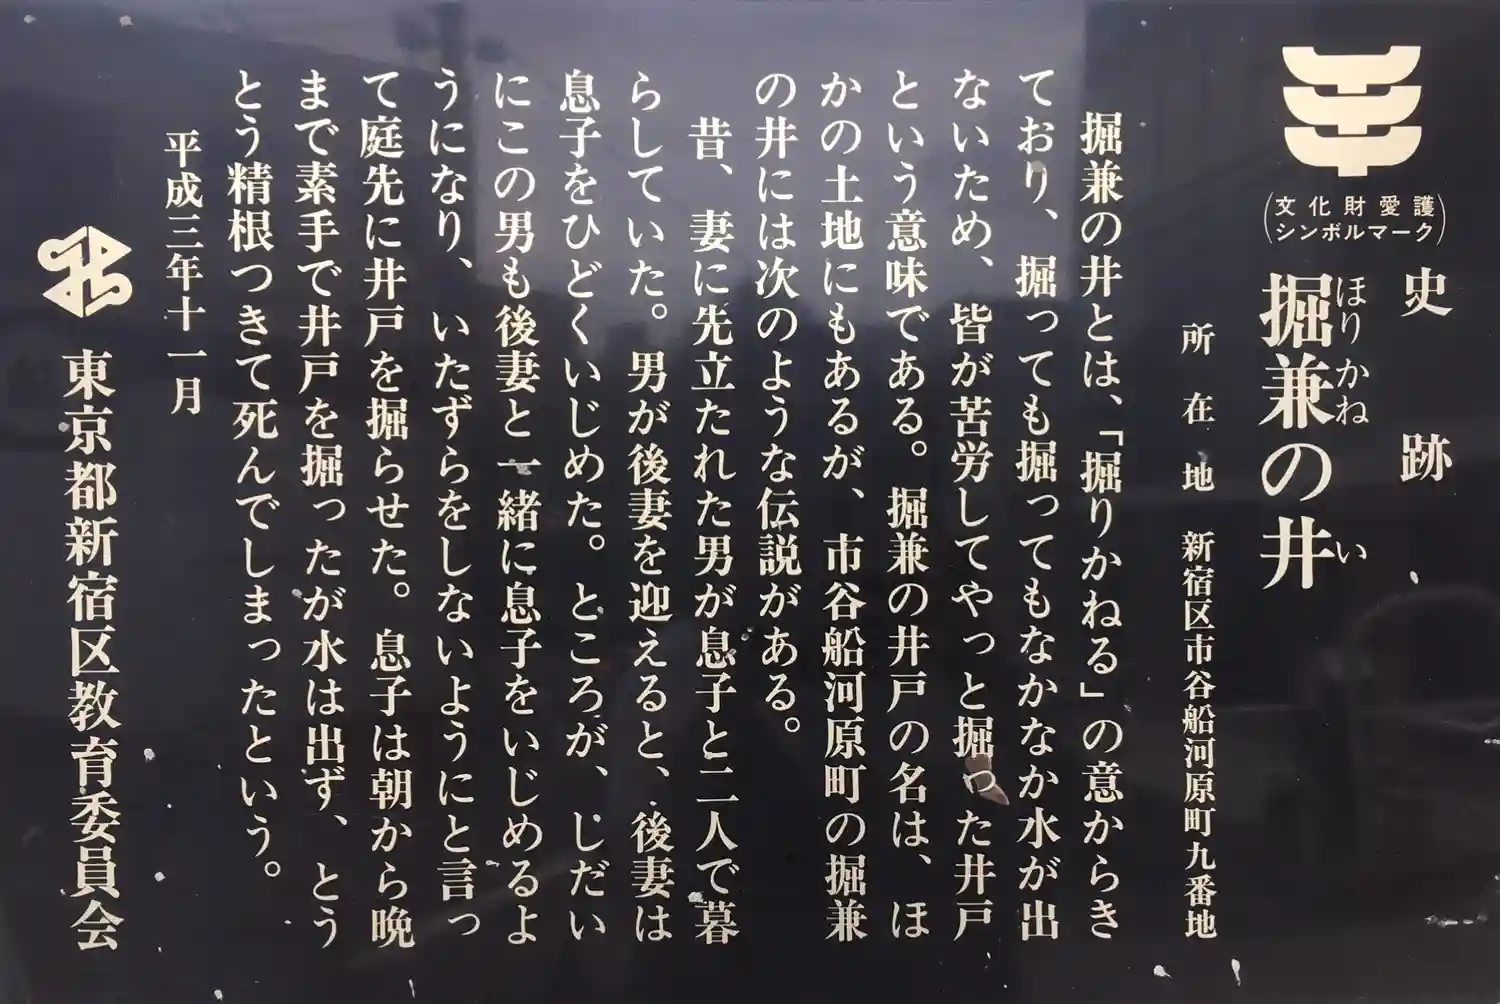 文化財愛護
シンボルマーク
史跡
ほりかね い
掘兼の井
所在地 新宿区市谷船河原町九番地
掘兼の井とは、「掘りかねる」の意からき
ており、掘っても掘ってもなかなか水が出
ないため、皆が苦労してやっと掘った井戸
という意味である。掘兼の井戸の名は、ほ
かの土地にもあるが、市谷船河原町の掘兼
の井には次のような伝説がある。
昔、妻に先立たれた男が息子と二人で暮
らしていた。男が後妻を迎えると、後妻は
息子をひどくいじめた。ところが、しだい
にこの男も後妻と一緒に息子をいじめるよ
うになり、いたずらをしないようにと言っ
て庭先に井戸を掘らせた。息子は朝から晩
まで素手で井戸を掘ったが水は出ず、とう
とう精根つきて死んでしまったという。
平成三年十一月
東京都新宿区教育委員会